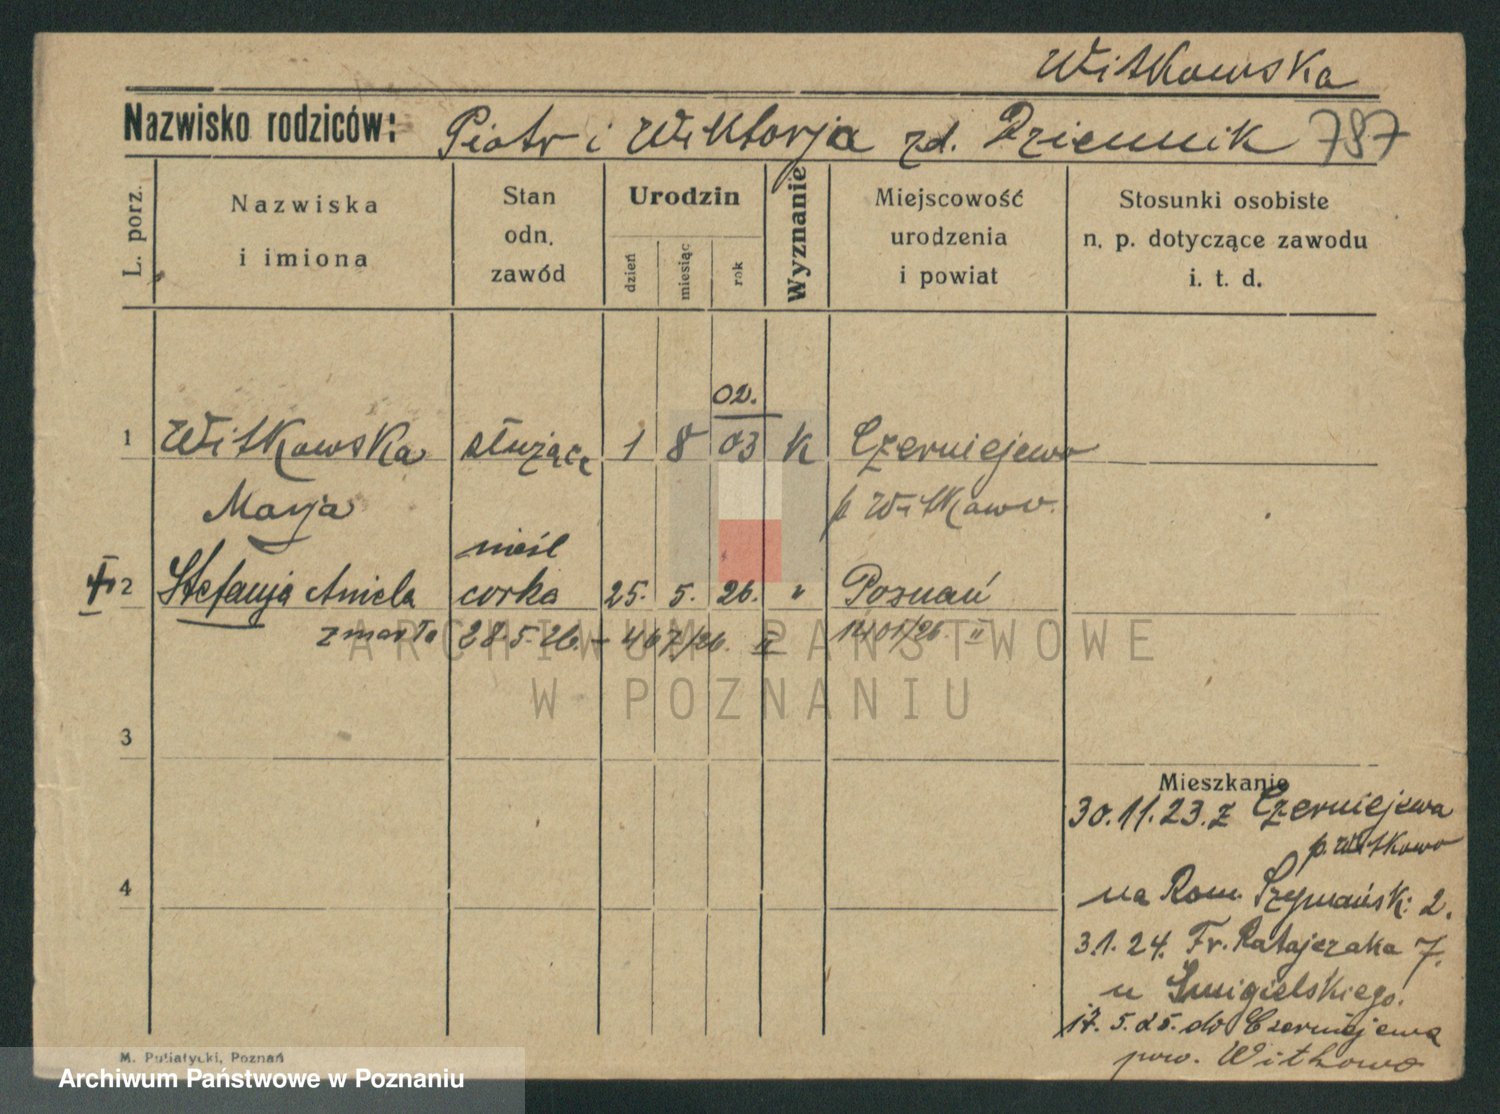 Witkowska
Nazwisko rodziców: Piotr i Wiktorja zd. Dziennik 787
L. porz.
Nazwiska
i imiona
Stan
odn.
zawód
Urodzin
dzień
miesiąc
rok
Wyznanie
Miejscowość
urodzenia
i powiat
Stosunki osobiste
n. p. dotyczące zawodu
i. t. d.
02.
1 Witkowska służąca 1 8 03 K Czerniejewo
Marja p Witkowo.
nieśl
2 Stefanja Aniela corka 25. 5. 26. " Poznań
zmarła 28.5.26. - 467/26. II 1401/26. II
3
4
Mieszkanie
30.11.23. z Czerniejewa
p. Witkowo
na Rom. Szymańsk: 2.
3.1.24. Fr. Ratajczaka 7.
u Smigielskiego.
17.5.25. do Czerniejewa
pow. Witkowo
ARCHIWUM PAŃSTWOWE
W POZNANIU
M. Putiatycki, Poznań
Archiwum Państwowe w Poznaniu